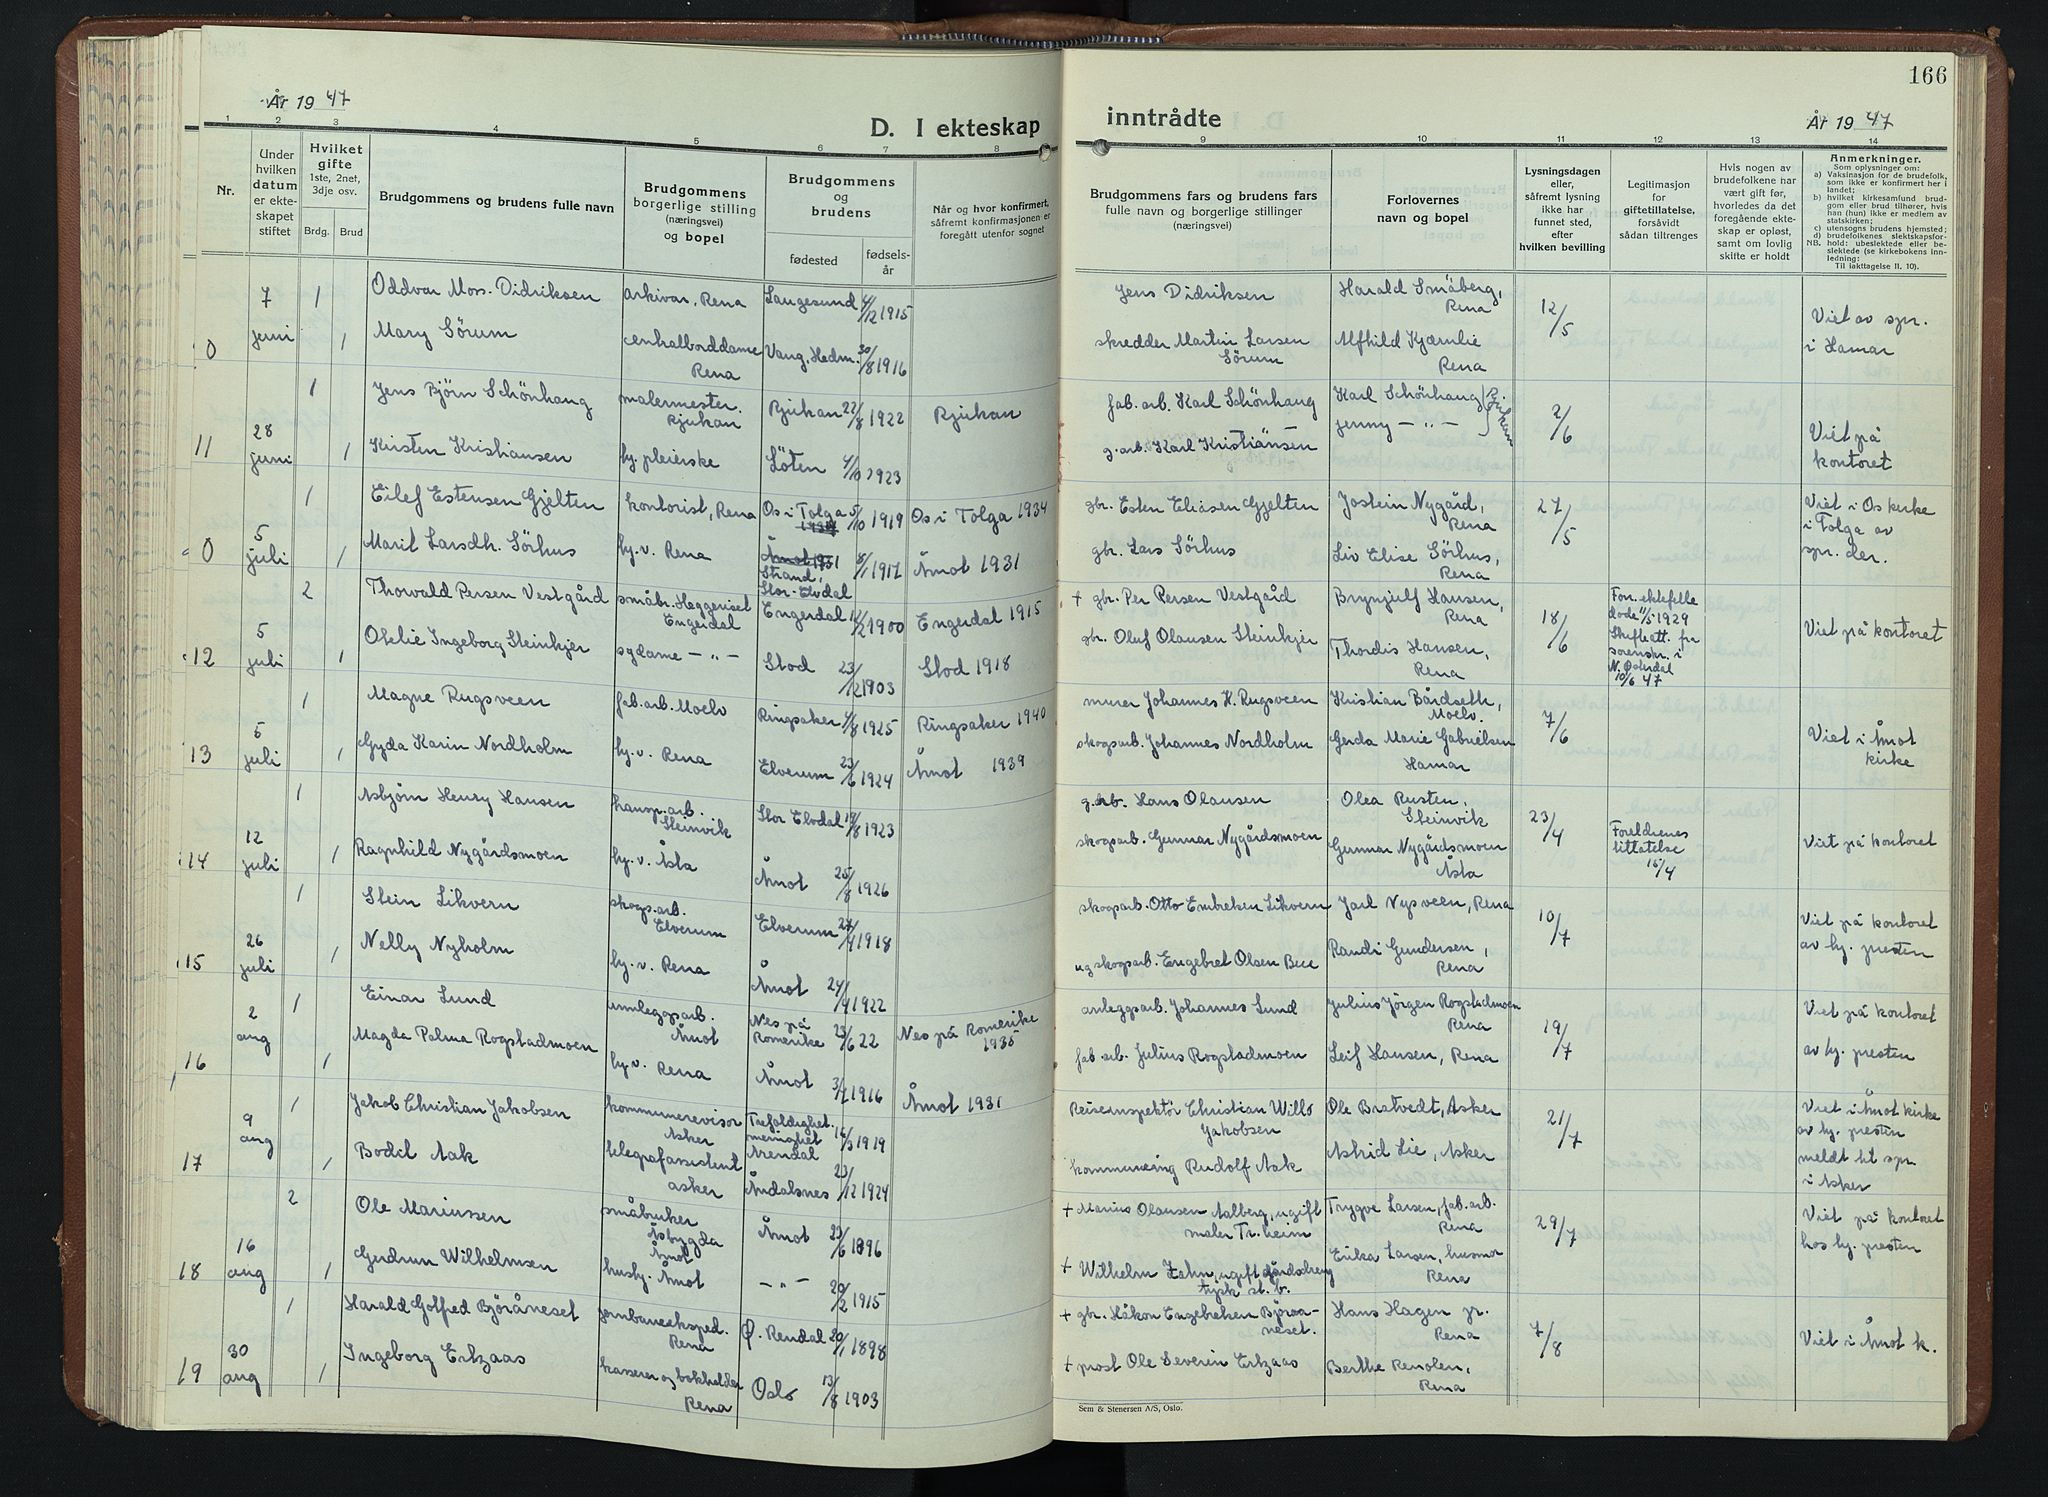 År 1947
D. I ekteskap
1 2 3 4 5 6 7 8
Nr.
Under hvilken datum er ekteskapet stiftet
Hvilket gifte 1ste, 2net, 3dje osv.
Brdg. Brud
Brudgommens og brudens fulle navn
Brudgommens borgerlige stilling (næringsvei) og bopel
Brudgommens og brudens
fødested fødselsår
Når og hvor konfirmert, såfremt konfirmasjonen er foregått utenfor sognet
7 1 Oddvar Mos. Didriksen arkivar, Rena Langesund 4/12 1915
0 juni 1 Mary Sörum centralborddame Rena Vang, Hedm. 30/8 1916
1 Jens Björn Schönhaug malermester. Rjukan Rjukan 22/8 1922 Rjukan
11 28 juni 1 Kirsten Kristiansen sy. pleierske Löten 4/10 1923
1 Eilef Estensen Gjelten kontorist, Rena Os i Tolga 5/10 1919 Os i Tolga 1934
0 5 juli 1 Marit Larsdh. Sörhus hj. v. Rena Strand, Stor-Elvdal 8/1 1917 Åmot 1931
2 Thorvald Persen Vestgård småbr. Heggeriset Engerdal Engerdal 12/2 1900 Engerdal 1915
12 5 juli 1 Otelie Ingeborg Steinkjer sydame — „ — Stod 23/12 1903 Stod 1918
1 Magne Rugsveen fab. arb. Moelv Ringsaker 4/8 1925 Ringsaker 1940
13 5 juli 1 Gyda Karin Nordholm hj. v. Rena Elverum 23/6 1924 Åmot 1939
1 Asbjörn Henry Hansen transp. arb. Steinvik Stor Elvdal 19/8 1923
14 12 juli 1 Ragnhild Nygårdsmoen hj. v. Åsta Åmot 25/8 1926
1 Stein Likvern skogs. arb. Elverum Elverum 27/4 1918
15 26 juli 1 Nelly Nyholm hj. v. Rena Åmot 24/4 1922
2 aug 1 Einar Lund anleggsarb. Åmot Nes på Romerike 23/6 22 Nes på Romerike
16 1 Magda Palma Rogstadmoen hj. v. Rena Åmot 1916 Åmot 1931
9 aug 1 Jakob Christian Jakobsen kommunerevisor Asker Trefoldighet. menighet Arendal 16/3 1919
17 1 Bodil Aak telegrafassistent asker Åndalsnes 23/12 1924
2 Ole Mariussen småbruker Åsbygda Åmot Åmot 23/6 1896
18 16 aug 1 Gudrun Wilhelmsen husby. Åmot — „ — 20/2 1915
1 Harald Gotfred Björåneset jernbaneeksped. Rena Ø. Rendal 20/1 1898
19 30 aug 1 Ingeborg Ertzaas kasserer og bokholder Rena Oslo 13/8 1903
166
inntrådte
År 1947
9 10 11 12 13 14
Brudgommens fars og brudens fars fulle navn og borgerlige stillinger (næringsvei)
Forlovernes navn og bopel
Lysningsdagen eller, såfremt lysning ikke har funnet sted, efter hvilken bevilling
Legitimasjon for giftetillatelse, forsåvidt sådan tiltrenges
Hvis nogen av brudefolkene har vært gift før, hvorledes da det foregående ekteskap er opløst, samt om lovlig skifte er holdt
Anmerkninger.
Som oplysninger om:
a) Vaksinasjon for de brudefolk, som ikke er konfirmert her i landet;
b) hvilket kirkesamfund brudgom eller brud tilhører, hvis han (hun) ikke er medlem av statskirken;
c) utensogns brudens hjemsted;
d) brudefolkenes slektskapsforhold: ubeslektede eller beslektede (se kirkebokens innledning:
NB. Til iakttagelse II. 10).
Jens Didriksen Harald Småberg, Rena 12/5 Viet av spr. i Hamar
skredder Martin Larsen Sörum Alfhild Kjærnlie Rena
fab. arb. Karl Schönhaug Karl Schönhaug Rjukan 2/6 Viet på kontoret
g. arb. Karl Kristiansen Jenny — „ —
gbr. Esten Eliasen Gjelten Jostein Nygård, Rena 27/5 Viet i Os kirke i Tolga av spr. der.
gbr. Lars Sörhus Liv Elise Sörhus, Rena
+ gbr. Per Persen Vestgård Brynjulf Hansen, Rena 18/6 Forr. ektefelle döde 11/5 1929 Skifteatt. fra sorenskr. i N. Østerdal 10/6 47 Viet på kontoret
gbr. Oluf Olausen Steinkjer Thordis Hansen, Rena
murer Johannes H. Rugsveen Kristian Bårdseth, Moelv. 7/6 Viet i Åmot kirke
skogsarb. Johannes Nordholm Gerda Marie Gabrielsen Hamar
g. arb. Hans Olausen Olea Rusten, Steinvik 23/4 Foreldrenes tillatelse 15/4 Viet på kontoret
skogsarb. Gunnar Nygårdsmoen Gunnar Nygårdsmoen Åsta
skogsarb. Otto Embretsen Likvern Jarl Nysveen, Rena 10/7 Viet på kontoret av hj. presten
ug skogsarb. Engebret Olsen Randi Gundersen, Rena
anleggsarb. Johannes Lund Julius Jörgen Rogstadmoen Rena 19/7 Viet på kontoret av hj. presten
fab arb. Julius Rogstadmoen Leif Hansen, Rena
Reiseinspektör Christian Jakobsen Ole Bratvedt, Asker 21/7 Viet i Åmot kirke av hj. presten meldt til spr. i Asker
kommuneing Rudolf Aak Astrid Lie, Asker
+ Marius Olausen Aalberg, ugift maler Tr.heim Trygve Larsen, fab. arb. Rena 29/7 Viet på kontoret hos hj. presten
+ Wilhelm Zahn, ugift gårdsdreng tysk st. b. Erika Larsen, husmor Rena
+ gbr. Håkon Engebretsen Björaaneset. Hans Hagen jr. Rena 7/8 Viet i Åmot k.
+ prost Ole Severin Ertzaas Berthe Renolen, Rena
Sem & Stenersen A/S, Oslo.